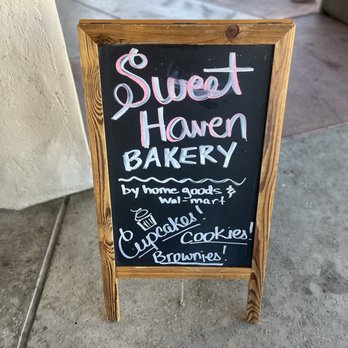 Sweet
Haven
BAKERY
by home goods &
wal-mart
Cupcakes!
Cookies!
Brownies!